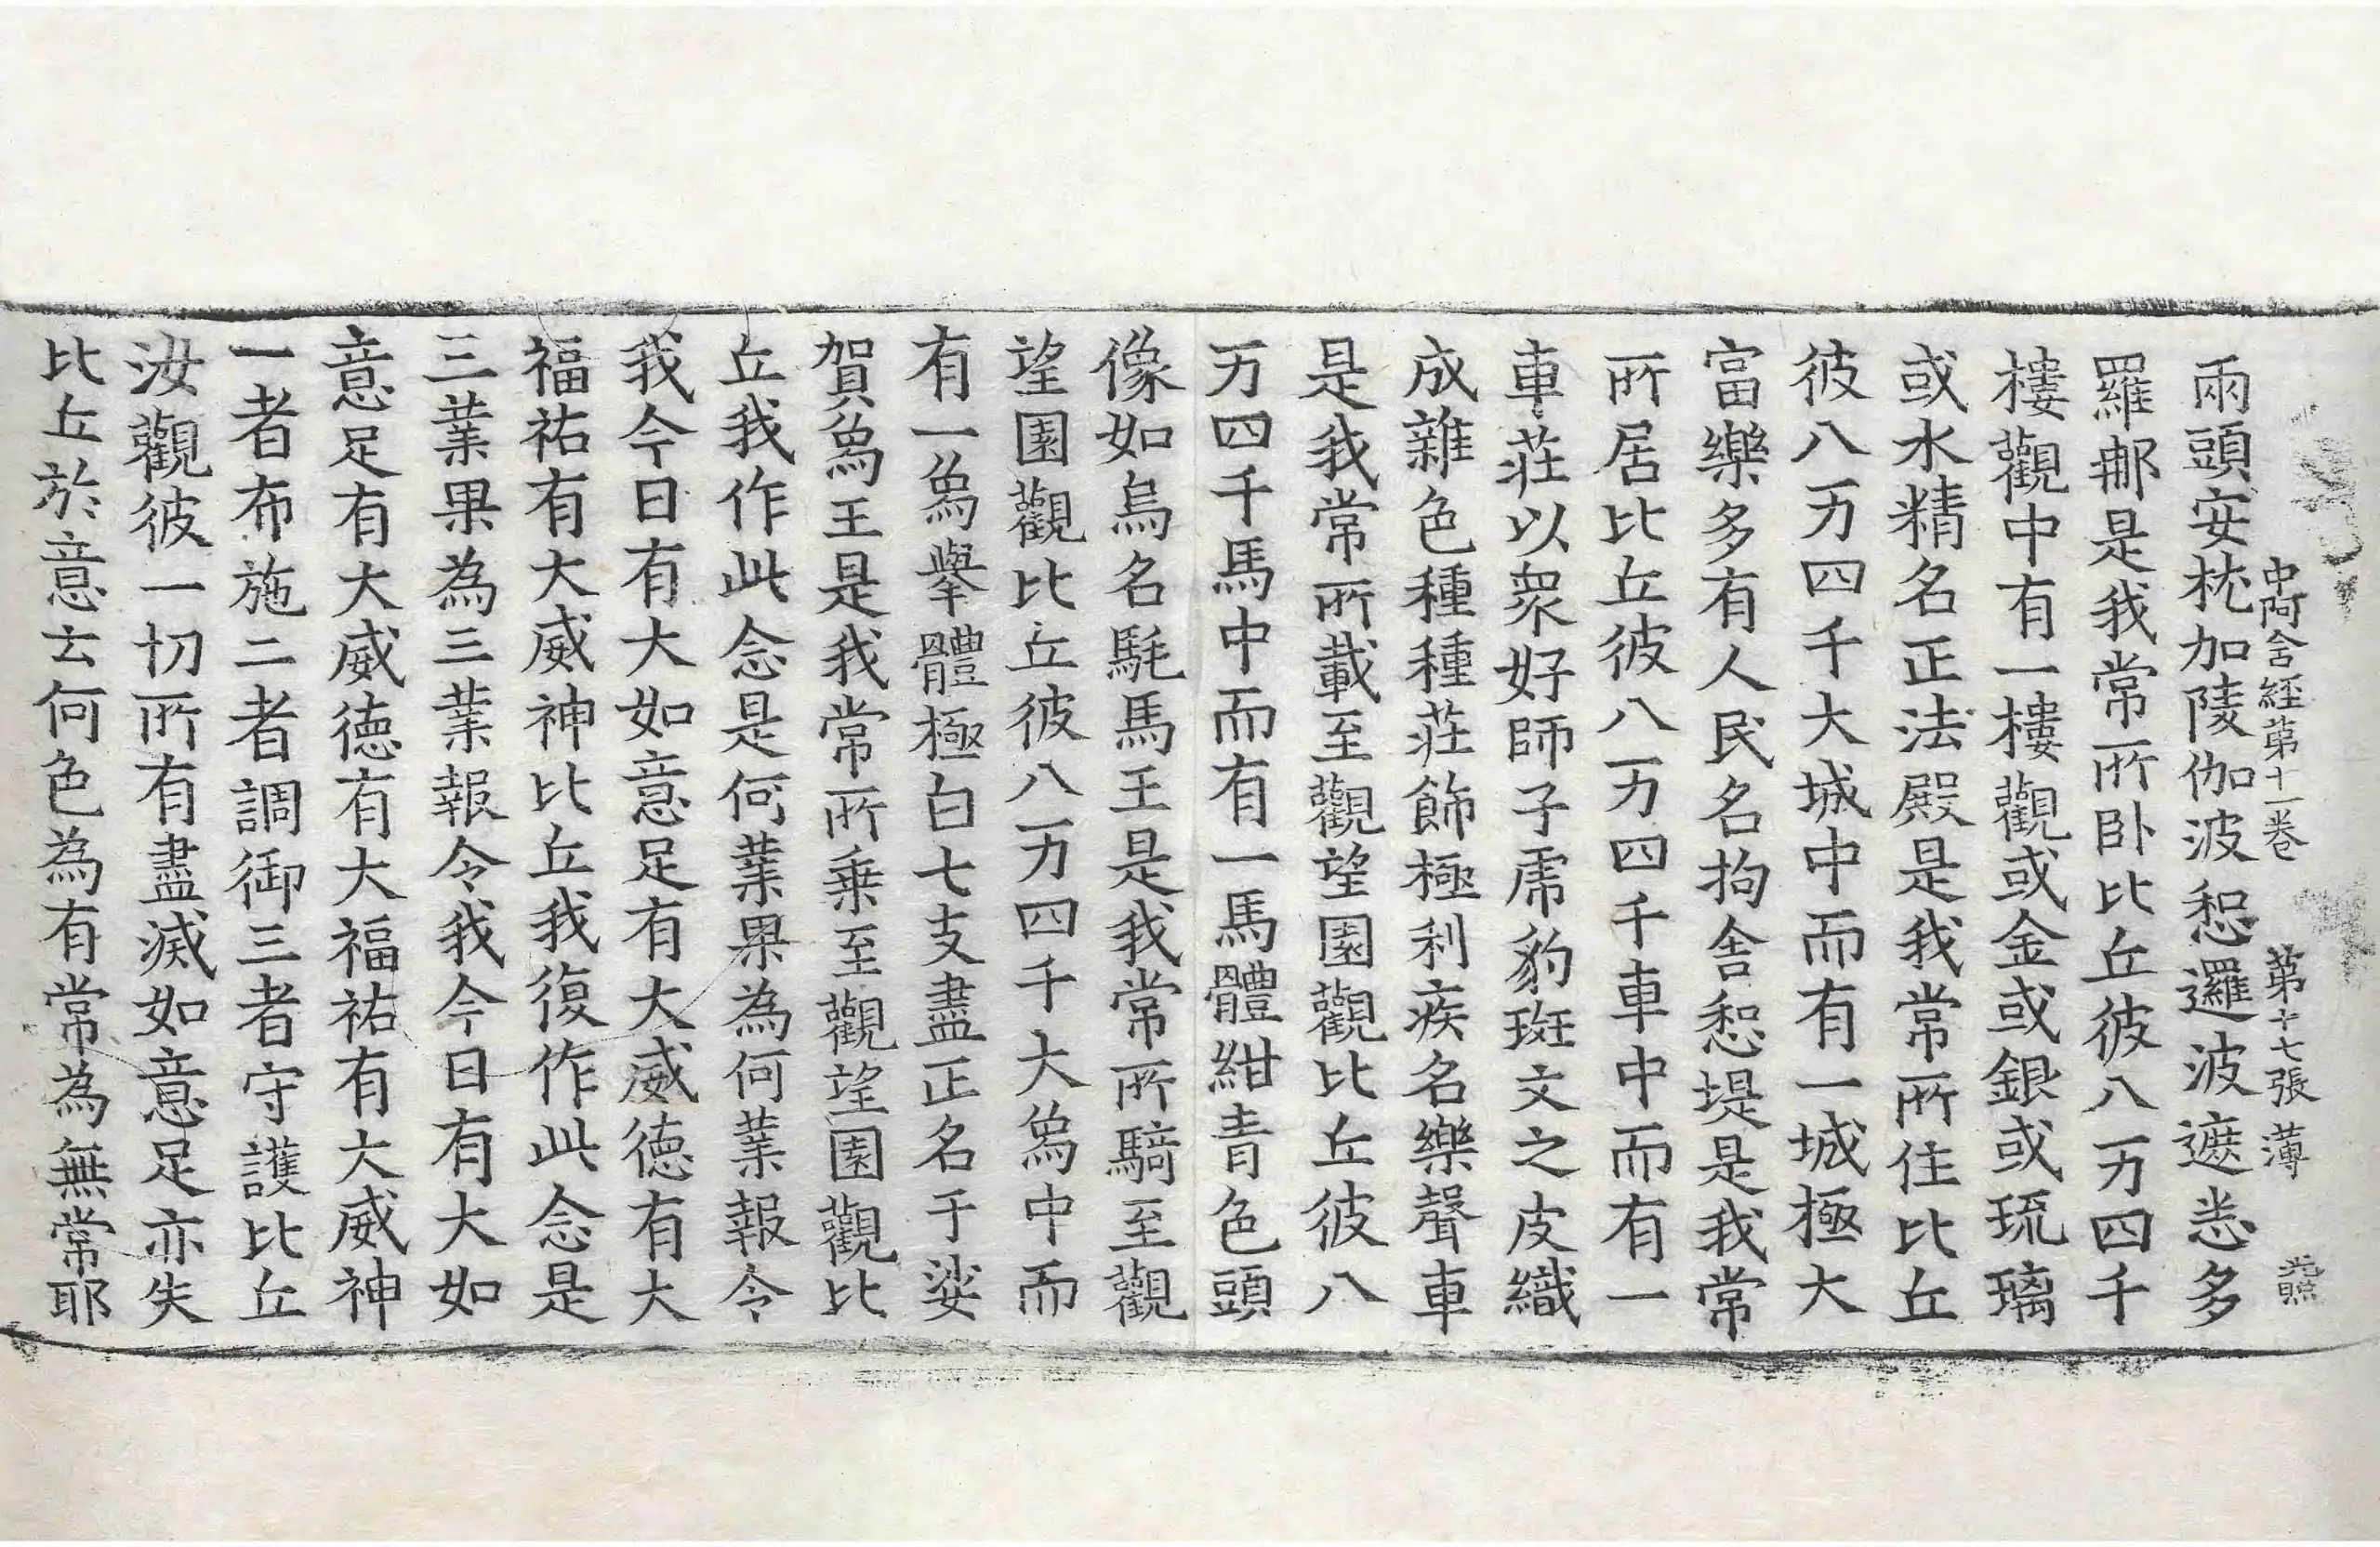 中阿含経苐十一巻 苐十七張 薄 光照
兩頭安枕加陵伽波惒邏波遮悉多
羅郍是我常所卧比丘彼八万四千
樓觀中有一樓觀或金或銀或琉璃
或水精名正法殿是我常所住比丘
彼八万四千大城中而有一城極大
富樂多有人民名拘舍惒堤是我常
所居比丘彼八万四千車中而有一
車莊以衆好師子虎豹斑文之皮織
成雜色種種莊飾極利疾名樂聲車
是我常所載至觀望園觀比丘彼八
万四千馬中而有一馬體紺青色頭
像如烏名髦馬王是我常所騎至觀
望園觀比丘彼八万四千大象中而
有一象舉體極白七支盡正名于娑
賀象王是我常所乗至觀望園觀比
丘我作此念是何業果為何業報令
我今日有大如意足有大威徳有大
福祐有大威神比丘我復作此念是
三業果為三業報令我今日有大如
意足有大威徳有大福祐有大威神
一者布施二者調御三者守護比丘
汝觀彼一切所有盡滅如意足亦失
比丘於意云何色為有常為無常耶